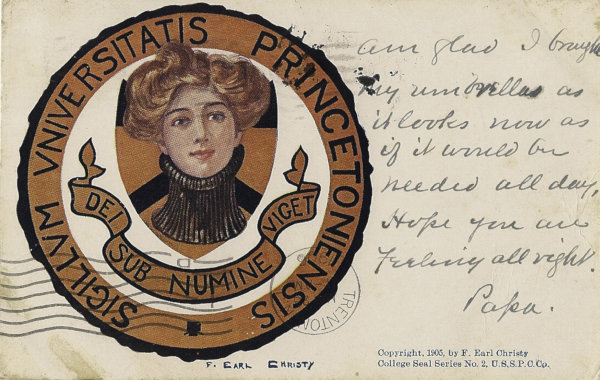 SIGILLVM VNIVERSITATIS PRINCETONIENSIS
DEI SUB NUMINE VIGET
am glad I brought
my umbrella as
it looks now as
if it would be
needed all day,
Hope you are
Feeling all right.
Papa.
TRENTON
F. EARL CHRISTY
Copyright, 1905, by F. Earl Christy
College Seal Series No. 2, U.S.S.P.C.Co.